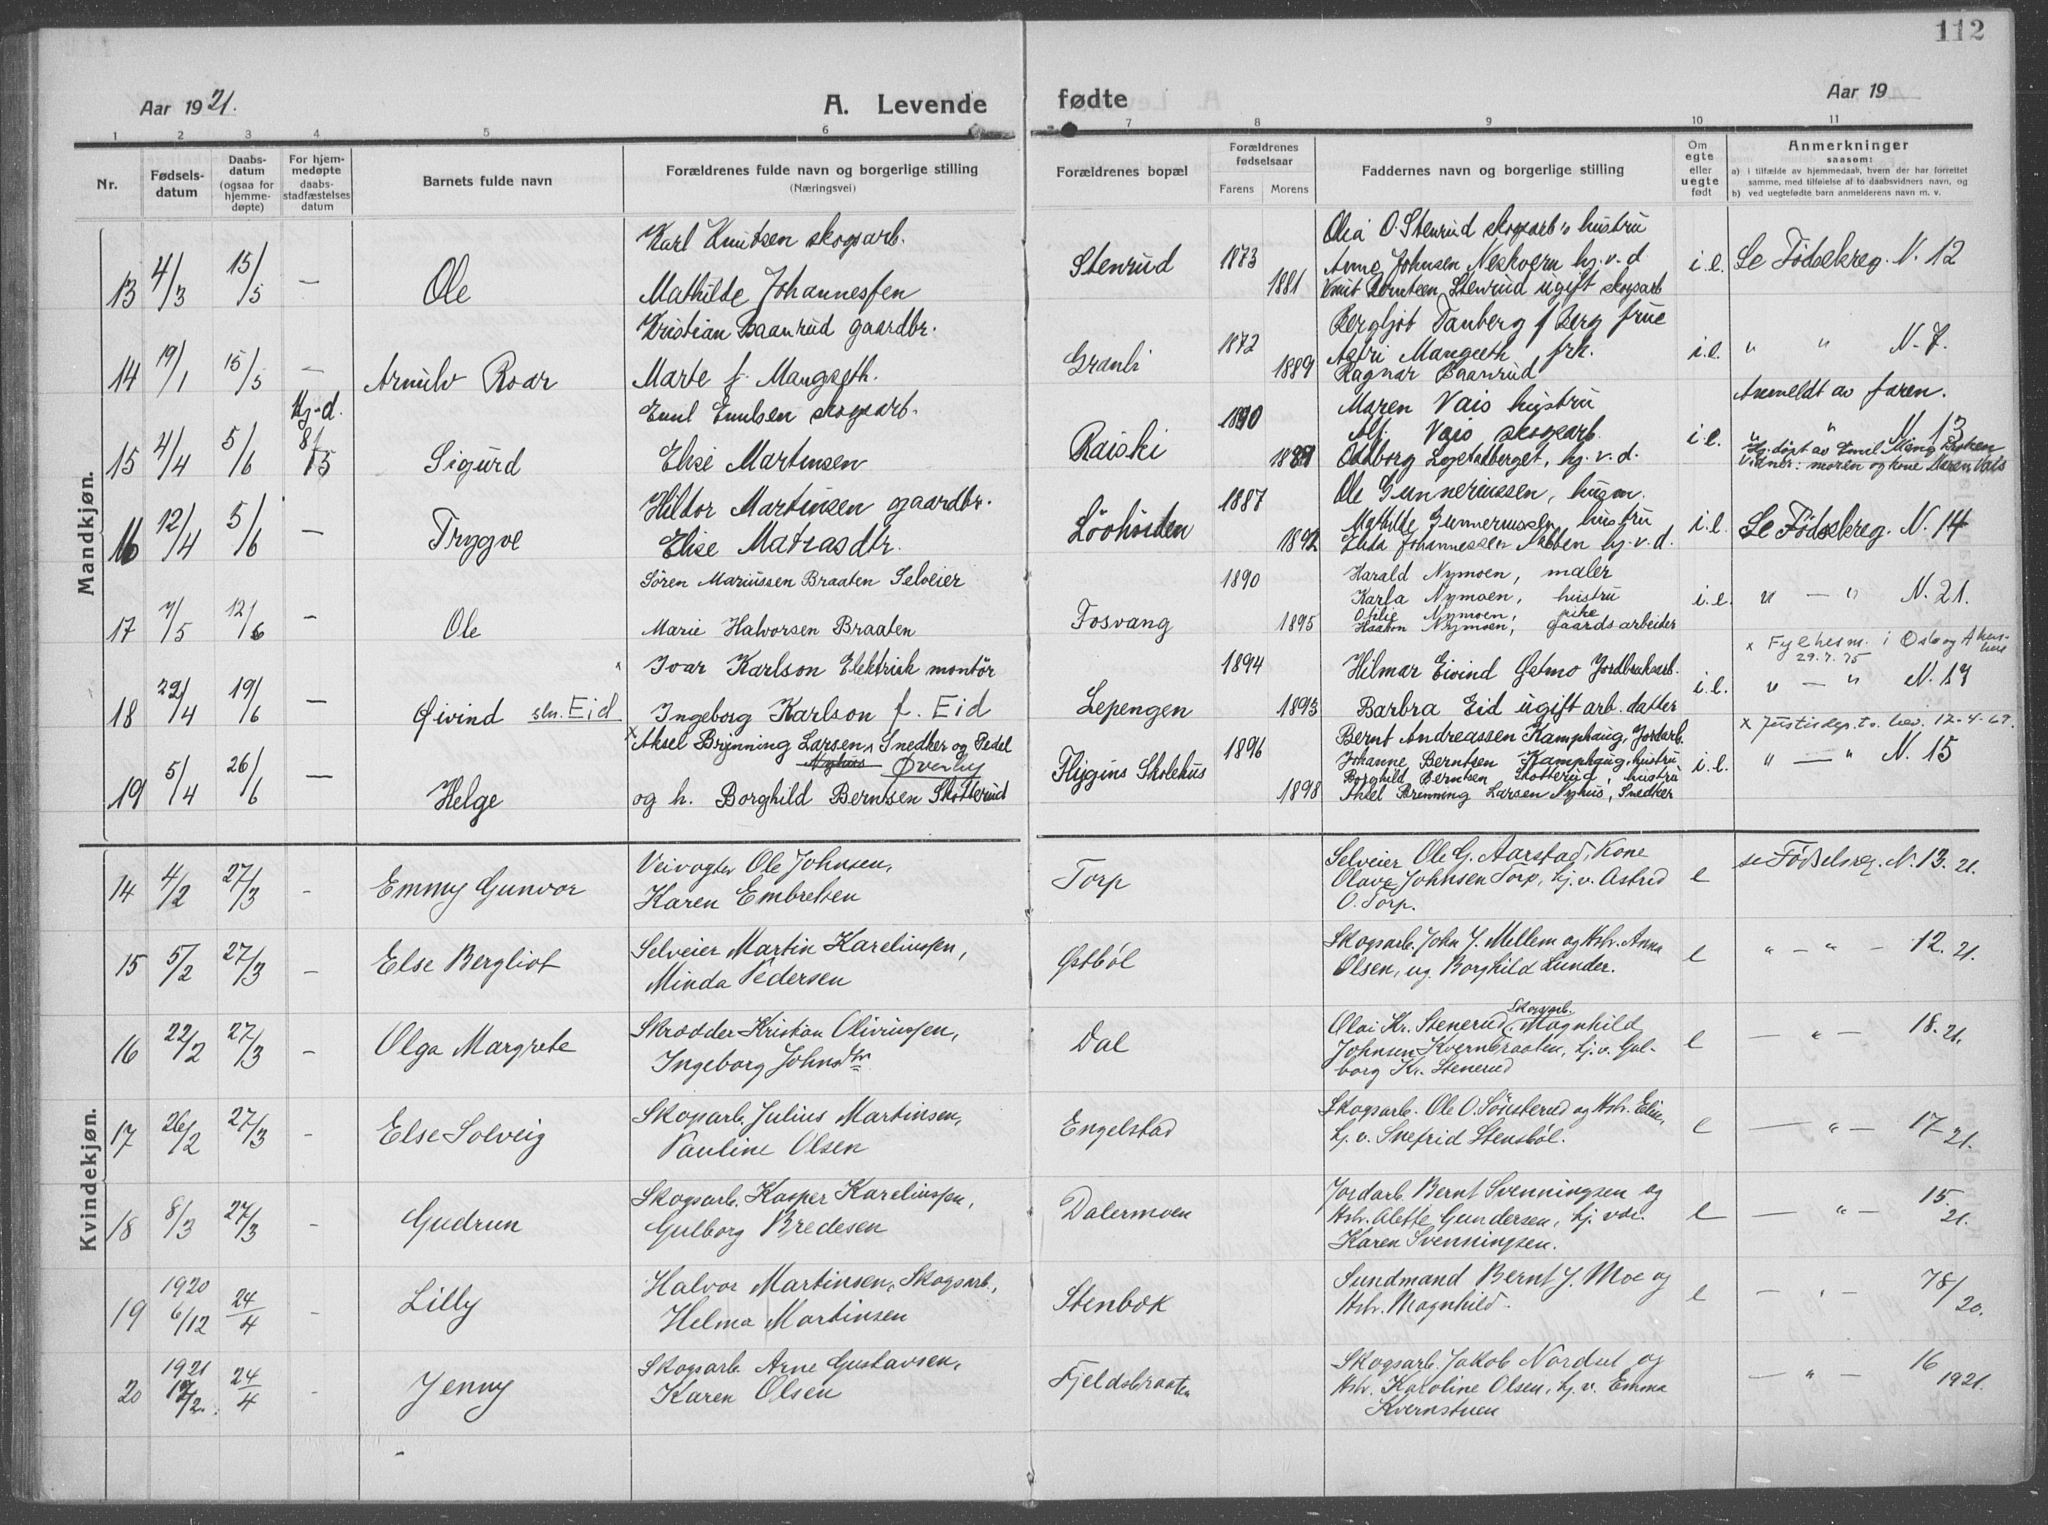 112
Aar 1921.
A. Levende fødte
Aar 19
1 2 3 4 5 6 7 8 9 10 11
Nr.
Fødsels-
datum
Daabs-
datum
(ogsaa for
hjemme-
døpte)
For hjem-
medøpte
daabs-
stadfæstelses
datum
Barnets fulde navn
Forældrenes fulde navn og borgerlige stilling
(Næringsvei)
Forældrenes bopæl
Forældrenes
fødselsaar
Farens Morens
Faddernes navn og borgerlige stilling
Om
egte
eller
uegte
født
Anmerkninger
saasom:
a) i tilfælde av hjemmedaab, hvem der har forrettet
samme, med tilføielse af to daabsvidners navn, og
b) ved uegtefødte barn anmelderens navn m. v.
Mandkjøn.
13 4/3 15/5 — Ole
Karl Knutsen skogsarb.
Mathilde Johannessen
Stenrud 1873 1881
Olia O. Stenrud skogarb's hustru
Anne Johnsen Neskvern hj. v. d
Knut Berntsen Stenrud ugift skogsarb
i.e. Se Fødselreg. N. 12
14 19/1 15/5 — Arnulv Roar
Kristian Baanrud gaardbr.
Marte f. Mangseth.
Granli 1872 1889
Bergljot Tanberg f Berg frue
Astri Mangseth frk.
Ragnar Baanrud
i.e. " " N. 7.
15 4/4 5/6 Hj-d. 8/5 Sigurd
Emil Emilsen skogsarb.
Elise Martinsen
Raiski 1890
Maren Vais hustru
Alf. Vais skogarb.
Oddborg Løgetadberget, hj. v. d.
i.e. Anmeldt av faren.
" " N. 13
Hj. døpt av Emil
Vidner: moren og kone Maren Vais
16 12/4 5/6 — Trygve
Hildor Martinsen gaardbr.
Elise Matrasdtr.
Lööholden 1887 1892
Ole Gunneriussen, husm.
Mathilde Gunneriussen hustru
Elida Johannessen Nabben hj. v. d.
i.e. Se Fødselreg. N. 14
17 7/5 12/6 — Ole
Sören Mariussen Braaten Selveier
Marie Halvorsen Braaten
Fosvang 1890 1895
Harald Nymoen, maler
Karla Nymoen, hustru
Otilie Nymoen, pike
Haakon Nymoen, gaardsarbeider
i.e. " — " N. 21.
18 29/4 19/6 — Øivind sln. Eid
x Ivar Karlson Elektrisk montör
Ingeborg Karlson f. Eid
Lepengen 1894 1893
Hilmar Eivind Østmo Jordbruksarb.
Barbra Eid ugift arb. datter
i.e. x Fylkesm. i Oslo og Akers-
hus
29.7.75
" — " N. 17
19 5/4 26/6 — Helge
x Aksel Brynning Larsen, Snedker og Pedel
Nyhus Øverby
og h. Borghild Berntsen Skotterud
Flygins Skolehus 1896 1898
Bernt Andreassen Kamphaug, Jordarb.
Johanne Berntsen Kamphaug, hustru
Borghild Berntsen Skotterud, hustru
Aksel Brynning Larsen Nyhus, Snedker
i.e. x Justisdep.ts bev. 12-4-67.
" — " N. 15
Kvindekjøn.
14 4/2 27/3 - Emmy Gunvor
Veivogter Ole Johnsen,
Karen Embretsen
Torp
Selveier Ole G. Aarstad, Kone
Olave Johnsen Torp, hj. v. Astrid
O. Torp.
e se Fødselsreg. N. 13. 21.
15 5/2 27/3 - Else Bergliot
Selveier Martin Kareliussen,
Minda Pedersen
Østböl
Skogsarb. John J. Mellem og Hstr. Anna
Olsen, ug. Borghild Lunder.
e " — " — 12. 21.
16 22/2 27/3 - Olga Margrete
Skrædder Kristian Oliviussen,
Ingeborg Johnsdtr
Dal
Olai Kr. Stenerud, Skogsarb. Magnhild
Johnsen Kvernbraaten, hj. v. Gul-
borg Kr. Stenerud
e — " — 18. 21.
17 26/2 27/3 - Else Solveig
Skogsarb. Julius Martinsen,
Pauline Olsen
Engelstad
Skogsarb. Ole O. Sönsterud og Hstr. Eline,
hj. v. Snefrid Stensböl.
e — " — 17- 21.
18 8/3 27/3 - Gudrun
Skogsarb. Kasper Kareliussen,
Gulborg Bredesen
Dalermoen
Jordarb. Bernt Svenningsen og
Hstr. Alette Gundersen, hj. vær.
Karen Svenningsen.
e — " — 15. 21.
19 1920 6/12 24/4 - Lilly
Halvor Martinsen, Skogsarb.,
Helma Martinsen
Stenbæk
Sundmand Bernt J. Moe og
Hstr. Magnhild.
e — " — 78/20.
20 1921 17/2. 24/4 Jenny
Skogsarb. Arne Gustavsen,
Karen Olsen
Fjeldsbraaten
Skogsarb. Jakob Nordset og
Hstr. Karoline Olsen, hj. v. Emma
Kvernstuen
— " — 16 1921.